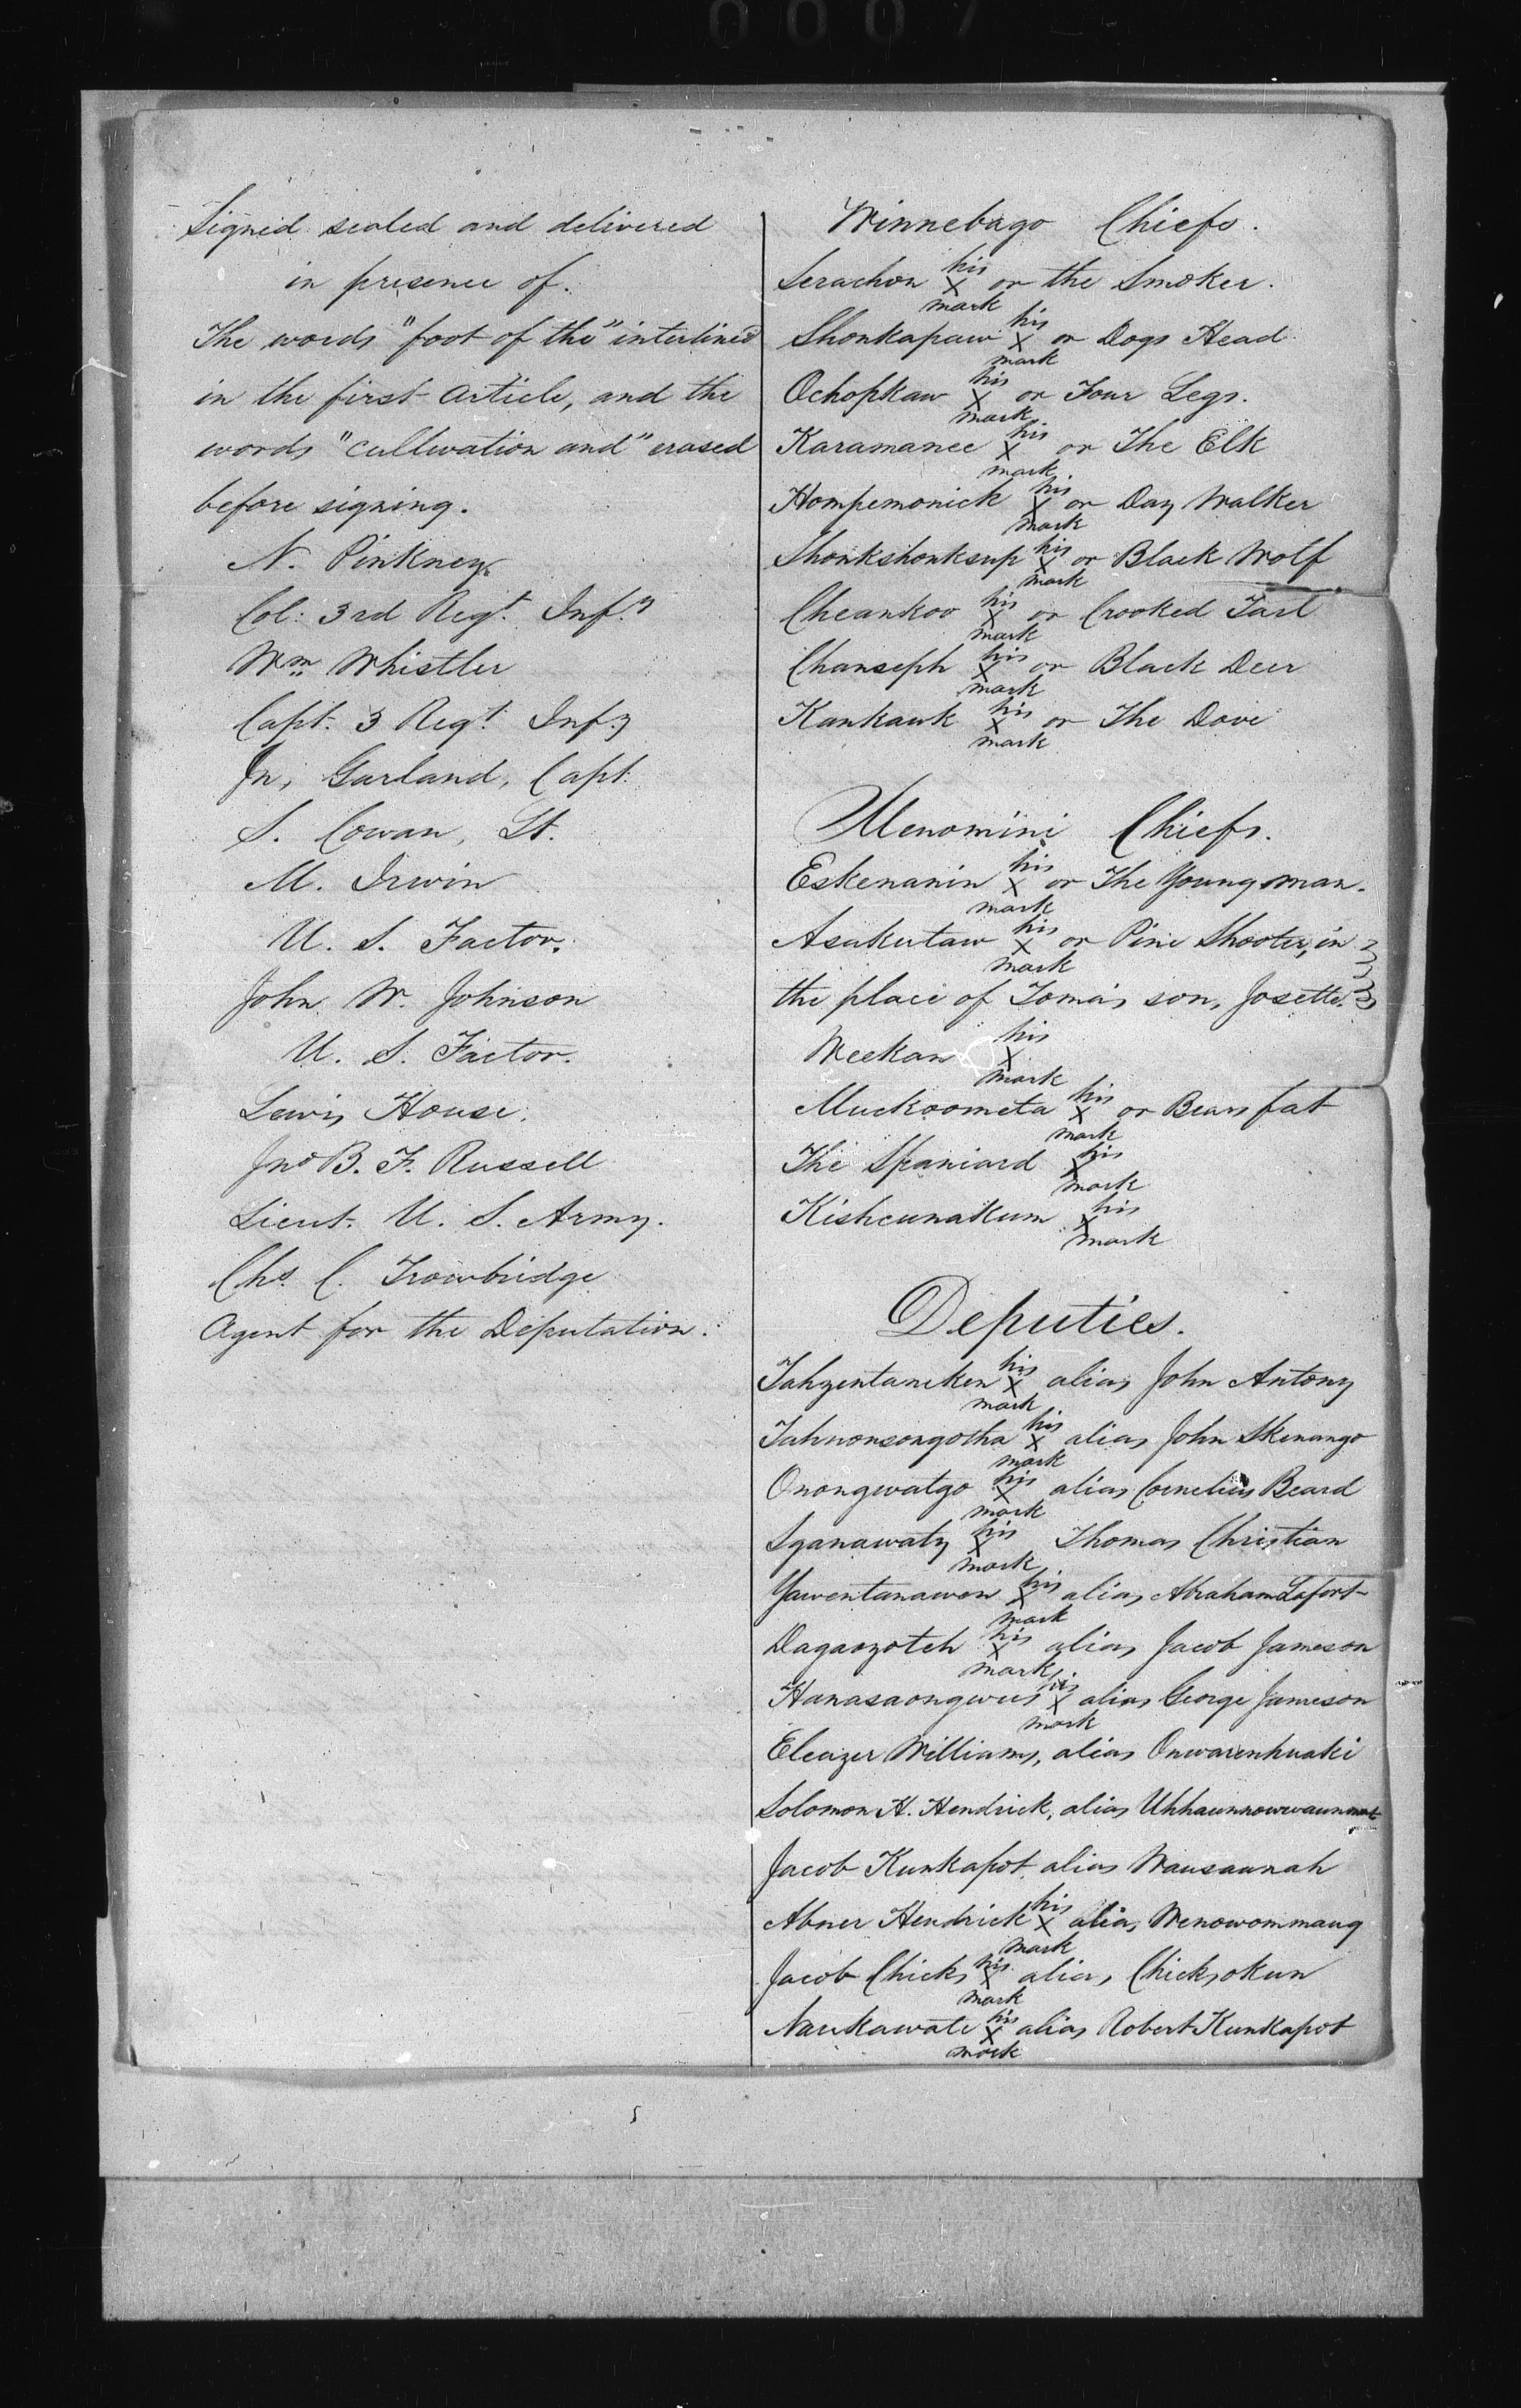 Signed sealed and delivered
in presence of.
The words "foot of the" interlined
in the first Article, and the
words "cultivation and" erased
before signing.
N. Pinkney
Col: 3rd Regt. Inf.y
Wm Whistler
Capt. 3 Regt. Inf.y
Jn, Garland, Capt.
S. Cowan, Lt.
M. Irwin
U. S. Factor.
John W. Johnson
U. S. Factor.
Lewis House.
Jno B. F. Russell
Lieut. U. S. Army.
Chs. C. Trowbridge
Agent for the Deputation.
Winnebago Chiefs.
Serachon his X mark or the Smoker.
Shonkapaw his X mark or Dogs Head
Ochopkaw his X mark or Four Legs.
Karamanee his X mark or The Elk
Hompemonick his X mark or Day Walker
Shonkshonksup his X mark or Black Wolf
Cheankoo his X mark or Crooked Tail
Chanseph his X mark or Black Deer
Kankauk his X mark or The Dove
Menomini Chiefs.
Eskenanin his X mark or The Young man.
Asukutaw his X mark or Pine Shooter, in
the place of Toma's son, Josette.
Weekan his X mark
Muckoometa his X mark or Bears fat
The Spaniard his X mark
Kishcunakum his X mark
Deputies.
Tahyentaneken his X mark alias John Antony
Tahnonsongotha his X mark alias John Skenango
Onongwatgo his X mark alias Cornelius Beard
Sganawaty his X mark Thomas Christian
Yawentanawen his X mark alias Abraham Lafort
Dagaoyoteh his X mark alias Jacob Jameson
Hanasaongwus his X mark alias George Jameson
Eleazer Williams, alias Onwarenhuaki
Solomon H. Hendrick, alias Uhhaunnowwaunmut
Jacob Kunkapot, alias Wausaunah
Abner Hendrick his X mark alias Wenowommaug
Jacob Chicks his X mark alias Chicksokun
Naukawate his X mark alias Robert Kunkapot